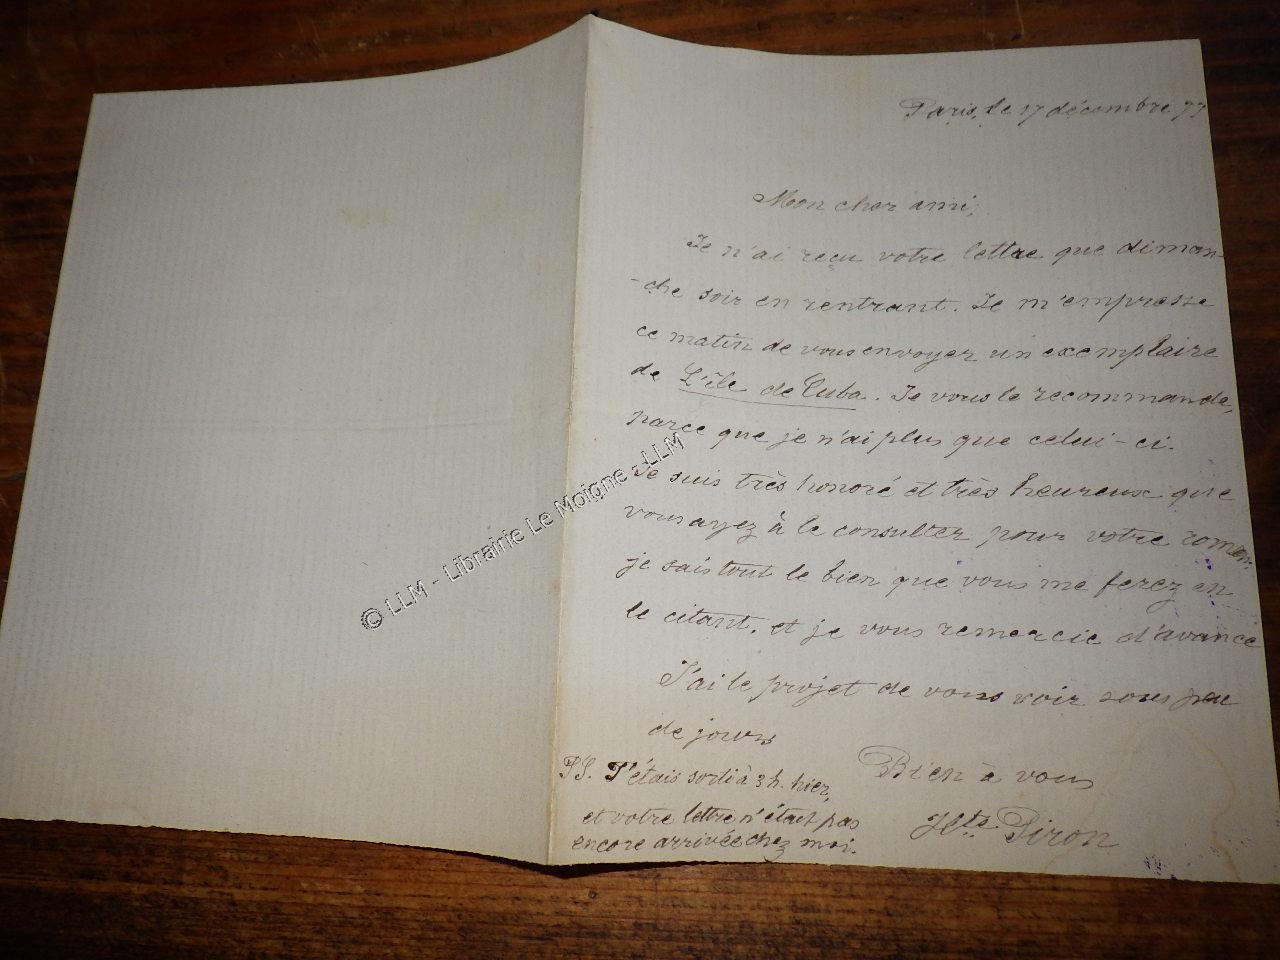 Paris, le 17 décembre 77
Mon cher ami,
Je n'ai reçu votre lettre que diman-
-che soir en rentrant. Je m'empresse
ce matin de vous envoyer un exemplaire
de L'île de Cuba. Je vous le recommande,
parce que je n'ai plus que celui-ci.
Je suis très honoré et très heureux que
vous ayez à le consulter pour votre roman.
je sais tout le bien que vous me ferez en
le citant, et je vous remercie d'avance
J'ai le projet de vous voir sous peu
de jours
Bien à vous
Hte Piron
PS. J'étais sorti à 3 h. hier,
et votre lettre n'était pas
encore arrivée chez moi.
© LLM - Librairie Le Moigne - LLM